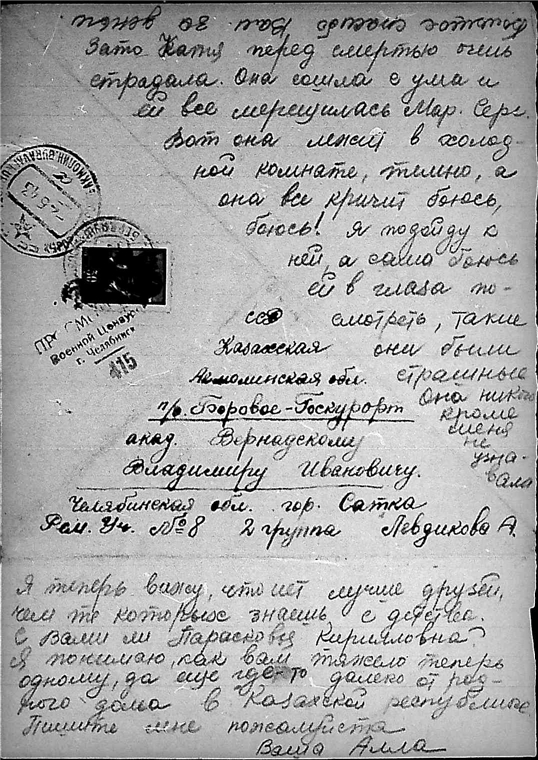 спасибо Вам за деньги
Зато Катя перед смертью очень
страдала. Она сошла с ума и
ей все мерещилась Мар. Серг.
Вот она лежит в холод-
ной комнате, темно, а
она все кричит боюсь,
боюсь! Я подойду к
ней, а сама боюсь
ей в глаза по-
смотреть, такие
они были
страшные
Она никого
кроме
меня
не
узна-
вала
ПРОСМОТРЕНО
Военной Цензурой
г. Челябинск
415
ССР
Казахская
Акмолинская обл.
п/о. Боровое-Госкурорт
акад. Вернадскому
Владимиру Ивановичу.
Челябинская обл. гор. Сатка
Рем. Уч. №8 2 группа Левдикова А.
Я теперь вижу, что нет лучше друзей,
чем те которых знаешь с детства.
С Вами ли Парасковья Кирилловна?
Я понимаю, как вам тяжело теперь
одному, да еще где-то далеко от род-
ного дома в Казахской республике.
Пишите мне пожалуйста
Ваша Алла